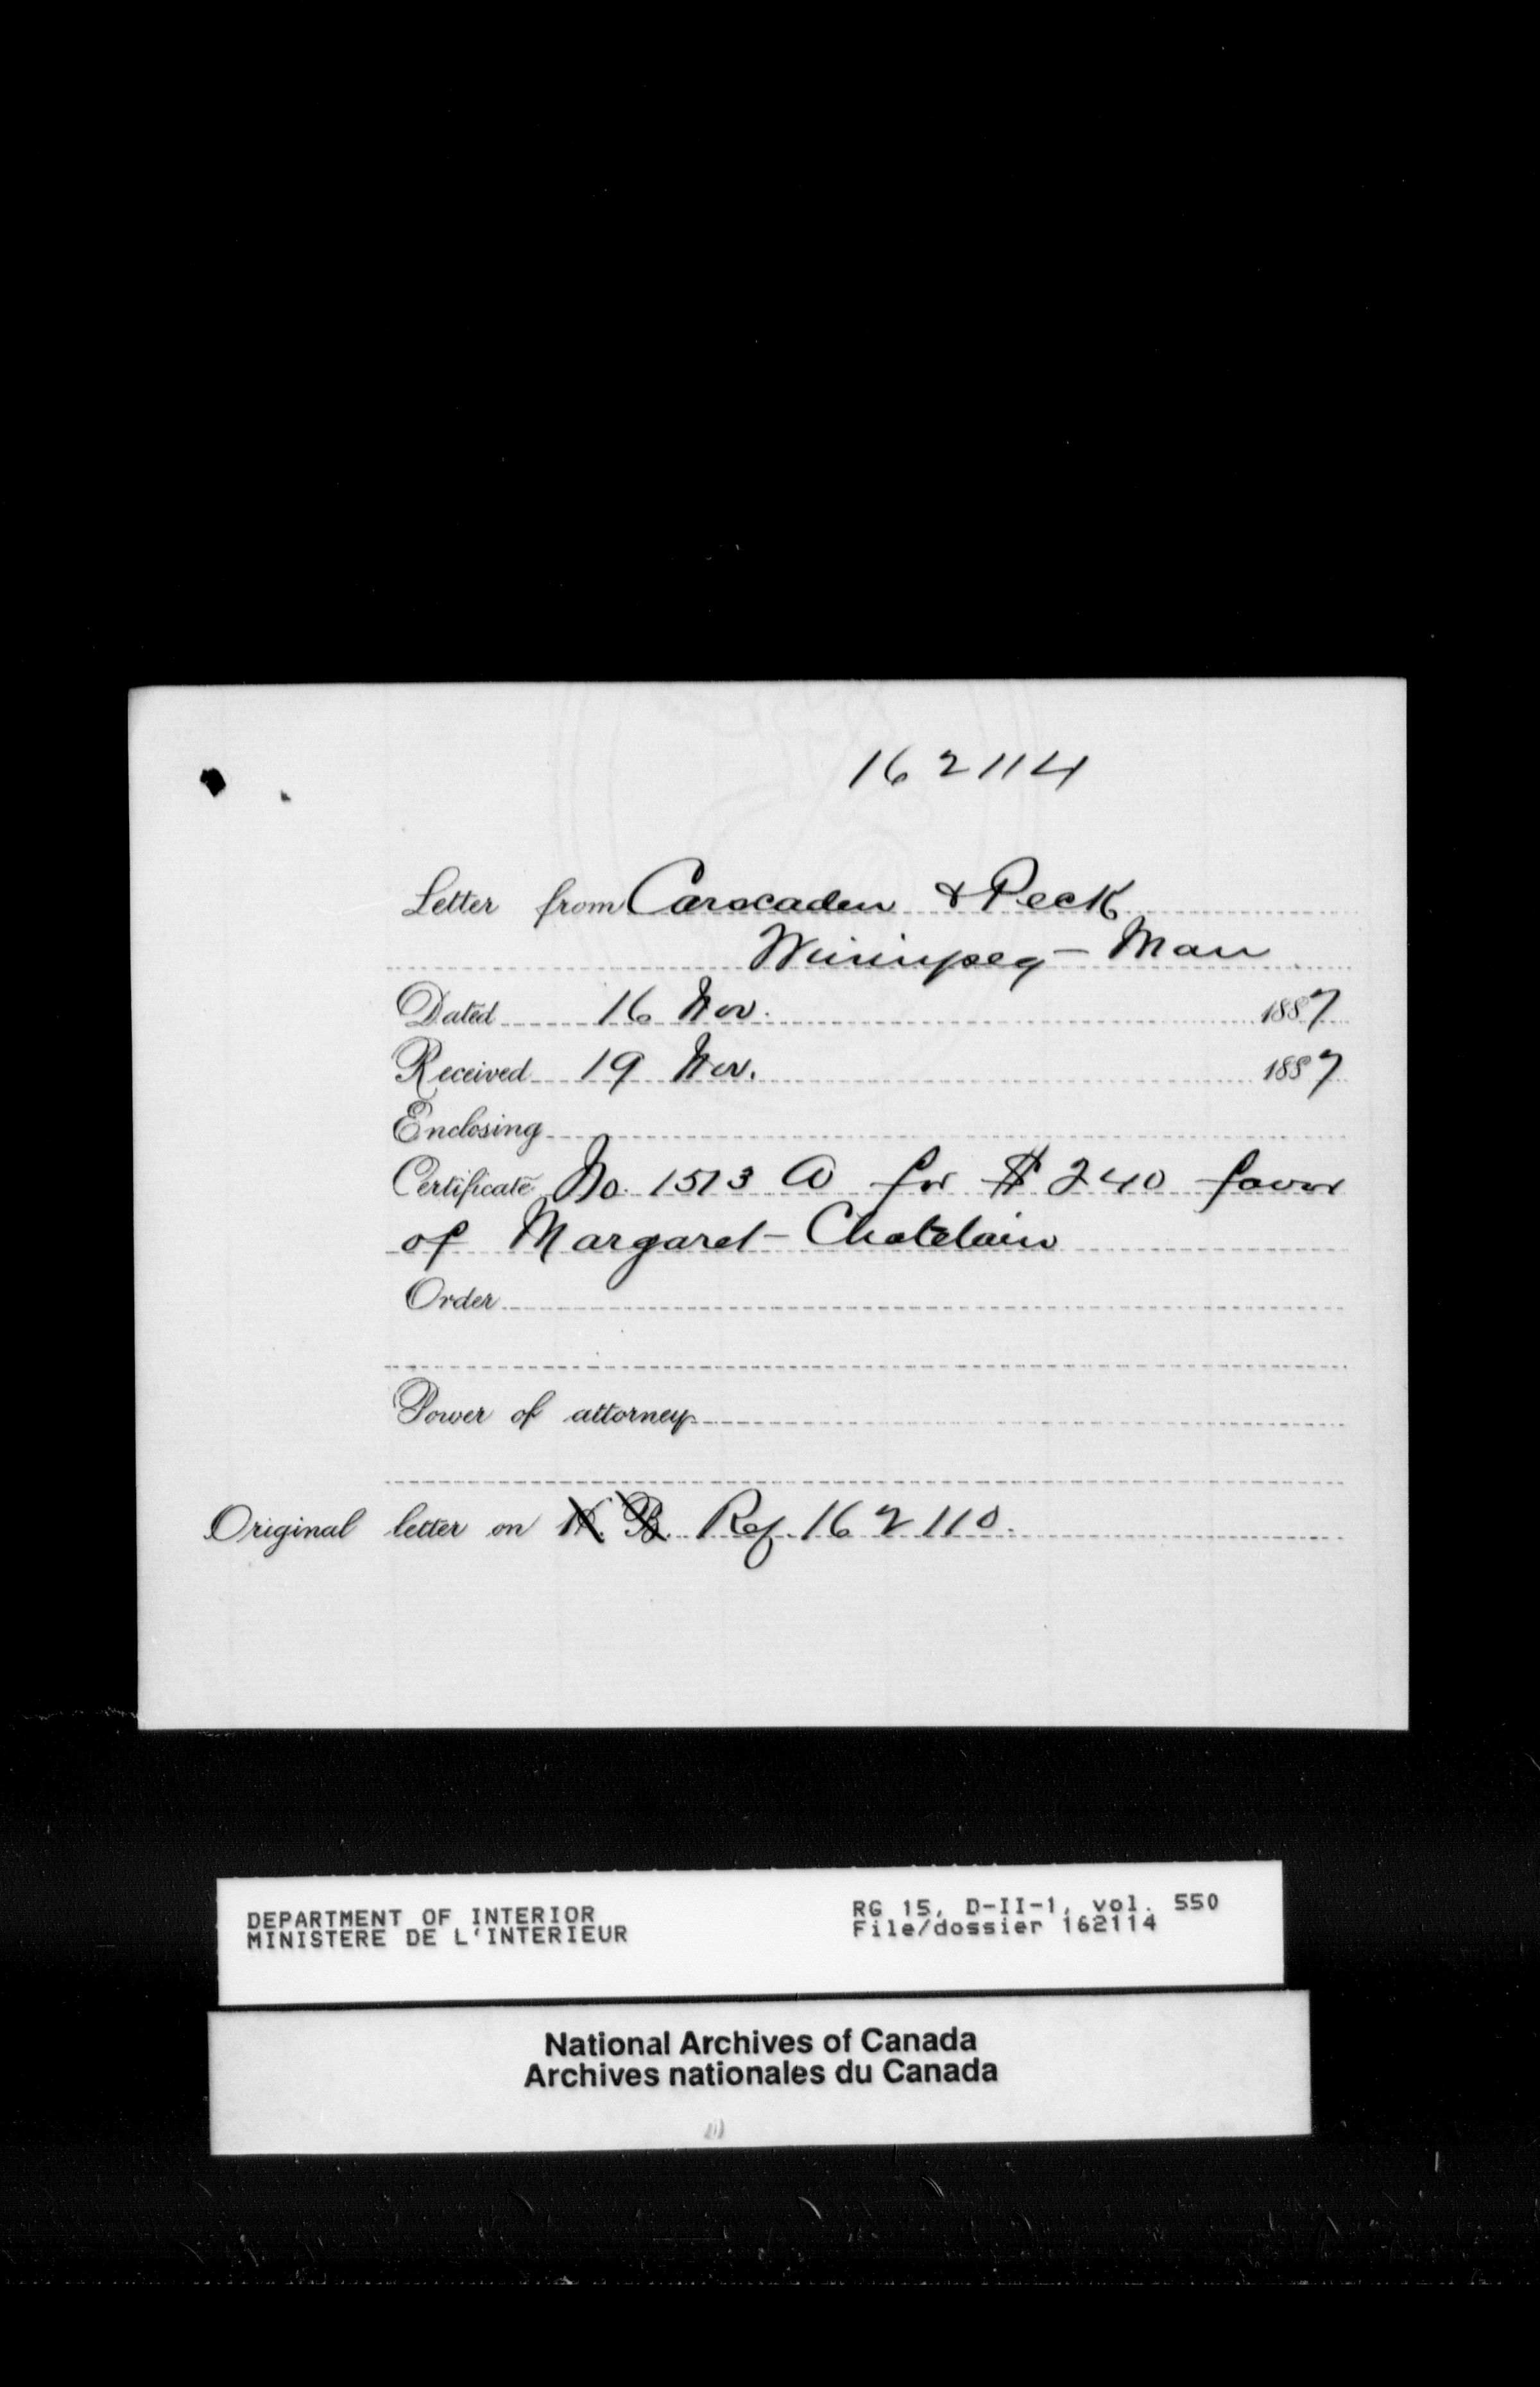 162114
Letter from Carscaden & Peck
Winnipeg - Man
Dated 16 Nov. 1887
Received 19 Nov. 1887
Enclosing
Certificate No. 1513 A for $240 favor
of Margaret Chatelain
Order
Power of attorney
Original letter on H. B. Ref. 162110.
DEPARTMENT OF INTERIOR
MINISTERE DE L'INTERIEUR
RG 15, D-II-1, vol. 550
File/dossier 162114
National Archives of Canada
Archives nationales du Canada